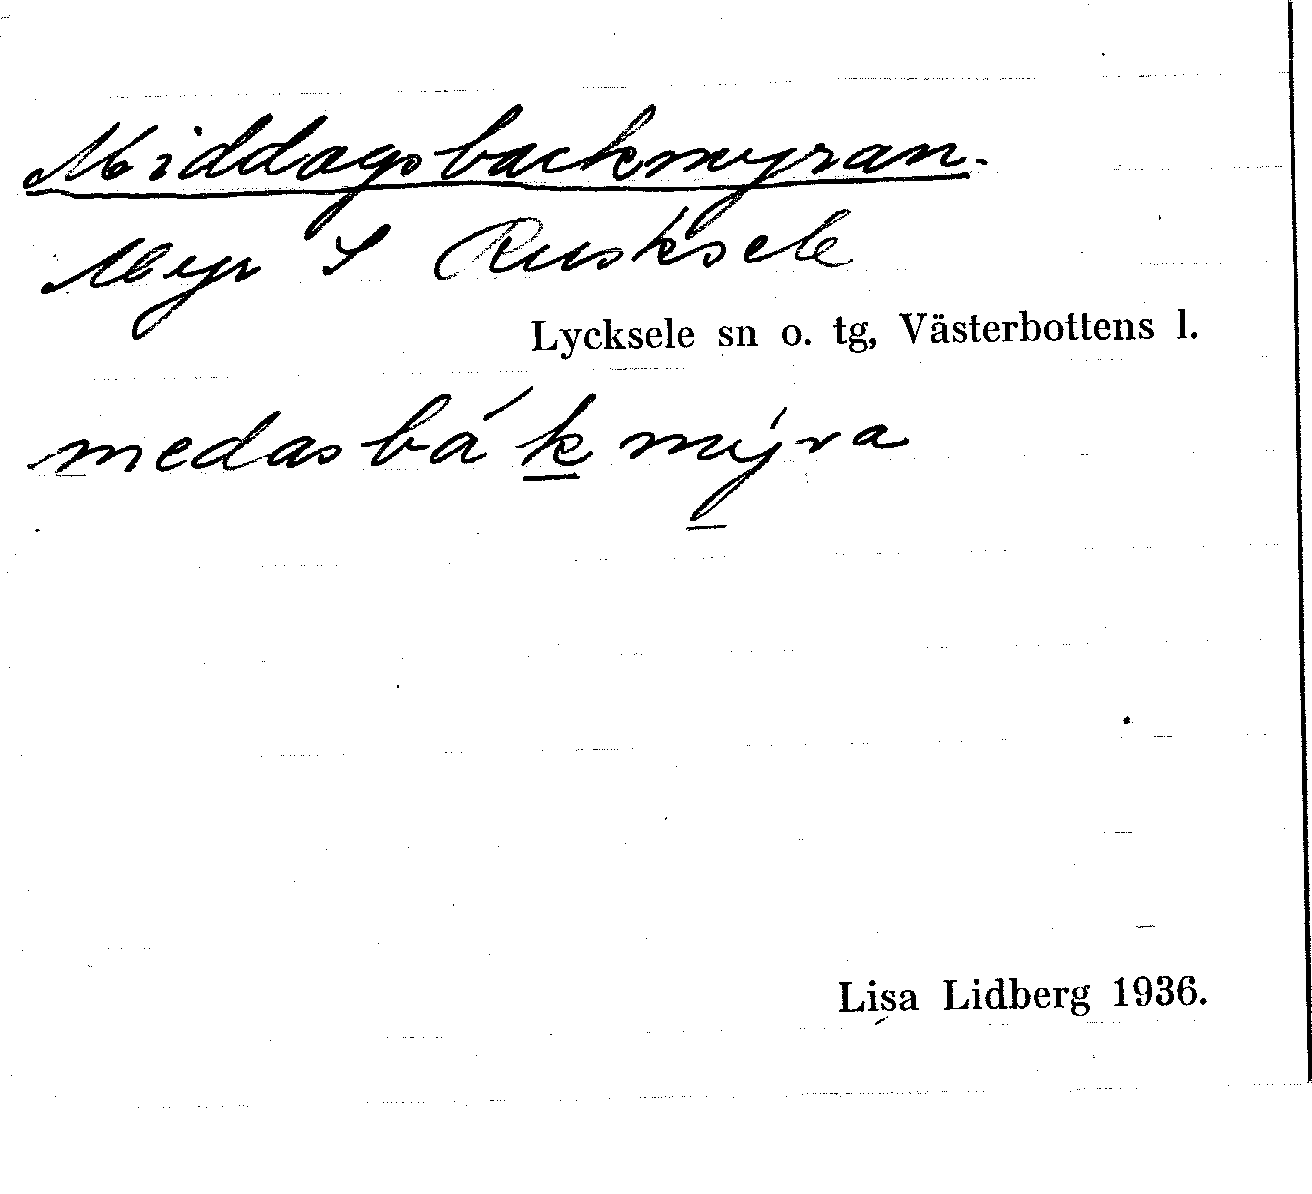 Middagsbackmyran.
Myr S Rusksele
Lycksele sn o. tg, Västerbottens l.
medasbá́k mýra
Lisa Lidberg 1936.